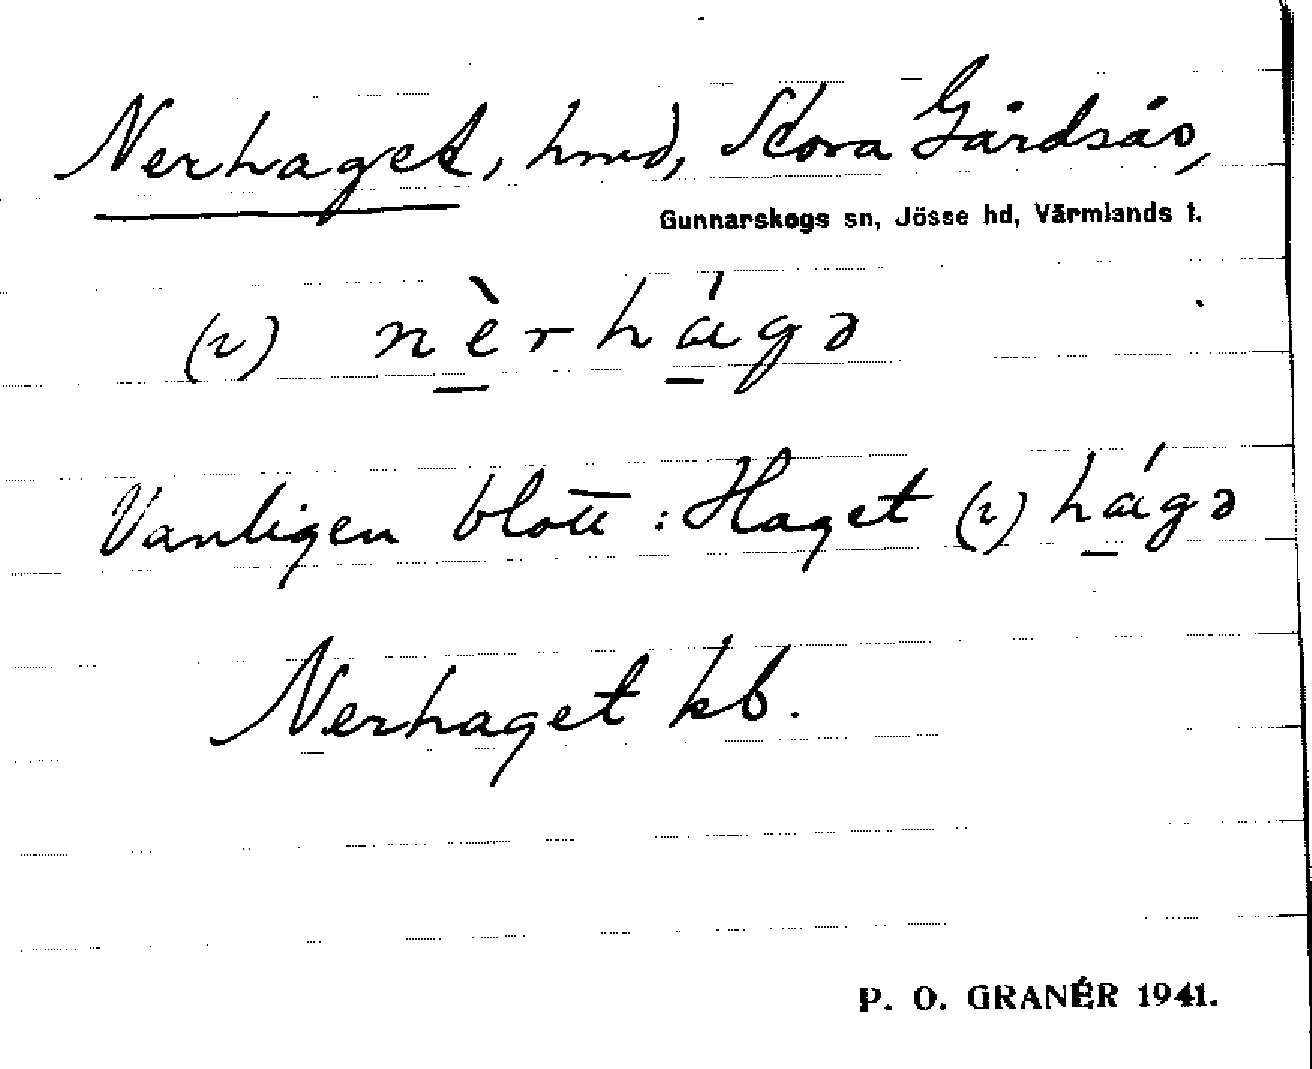 Nerhaget, hmd, Stora Gårdsås,
Gunnarskogs sn, Jösse hd, Värmlands l.
(2) nèrhágə
Vanligen blott: Haget (2) hágə
Nerhaget kb.
P. O. GRANÉR 1941.